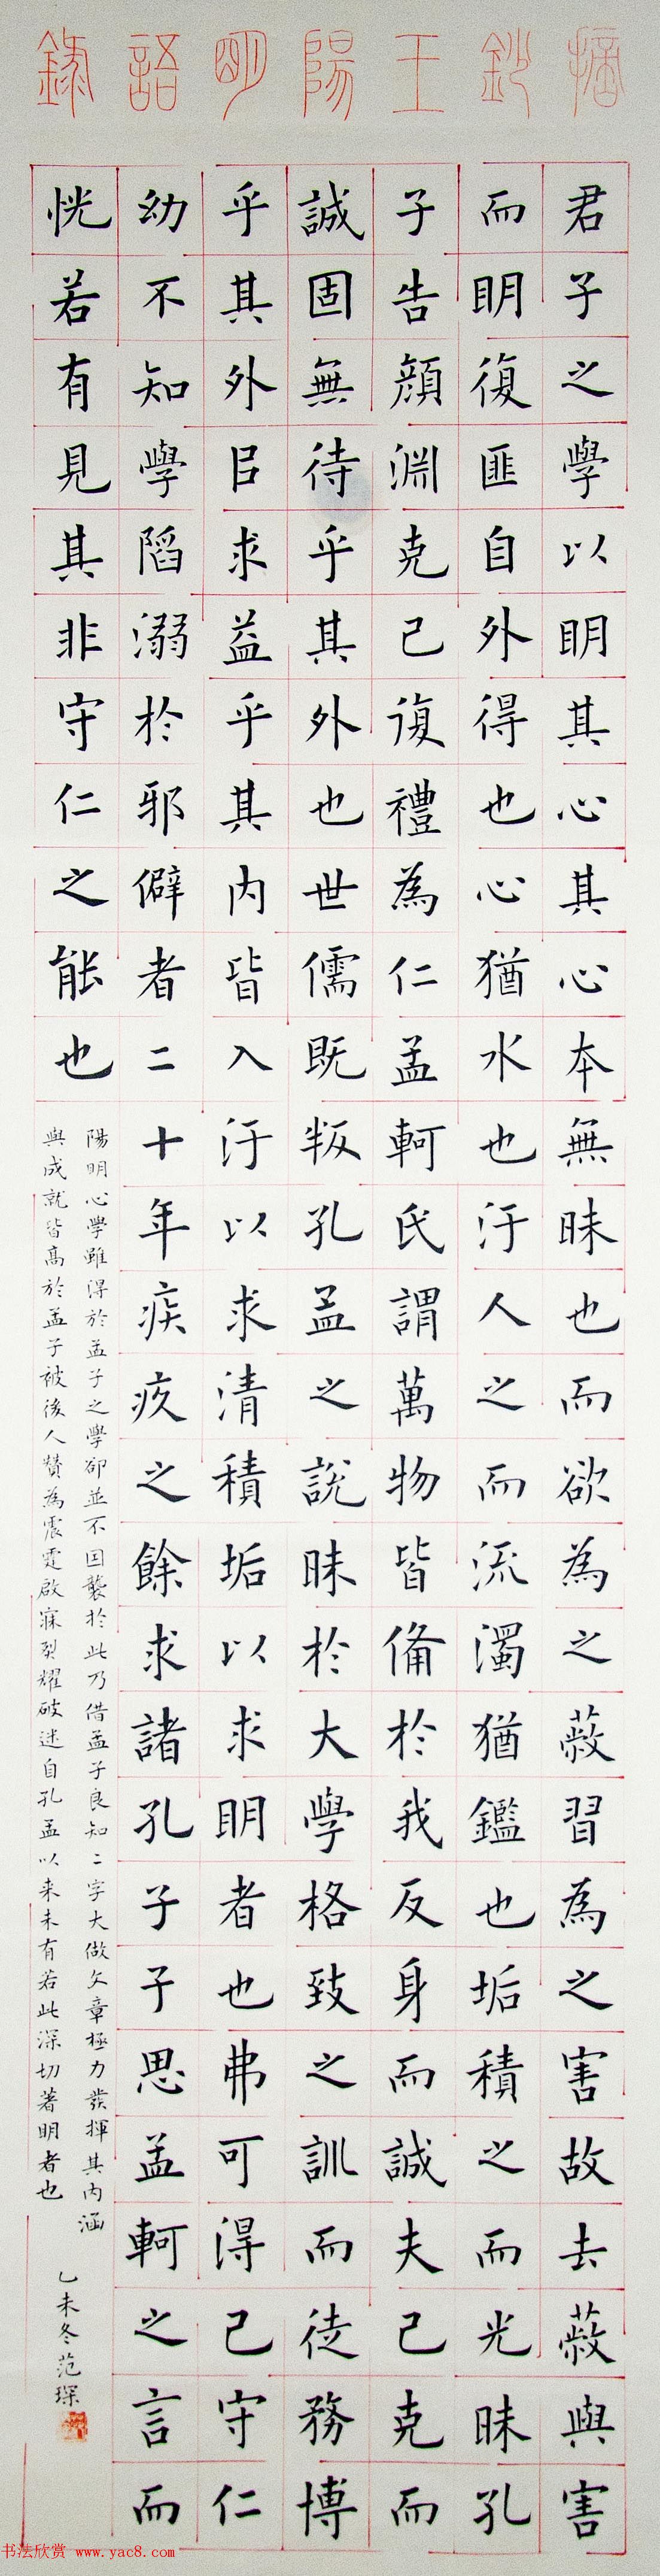 摘鈔王陽明語錄
君子之學以明其心其心本無昧也而欲為之蔽習為之害故去蔽與害
而明復匪自外得也心猶水也汙人之而流濁猶鑑也垢積之而光昧孔
子告顏淵克己復禮為仁孟軻氏謂萬物皆備於我反身而誠夫己克而
誠固無待乎其外也世儒既叛孔孟之說昧於大學格致之訓而徒務博
乎其外㠯求益乎其內皆入汙以求清積垢以求明者也弗可得已守仁
幼不知學陷溺於邪僻者二十年疾疚之餘求諸孔子子思孟軻之言而
恍若有見其非守仁之能也
陽明心學雖得於孟子之學卻並不因襲於此乃借孟子良知二字大做文章極力發揮其內涵
與成就皆高於孟子被後人贊為震霆啟寐烈耀破迷自孔孟以來未有若此深切著明者也
乙未冬范琛
书法欣赏 www.yac8.com